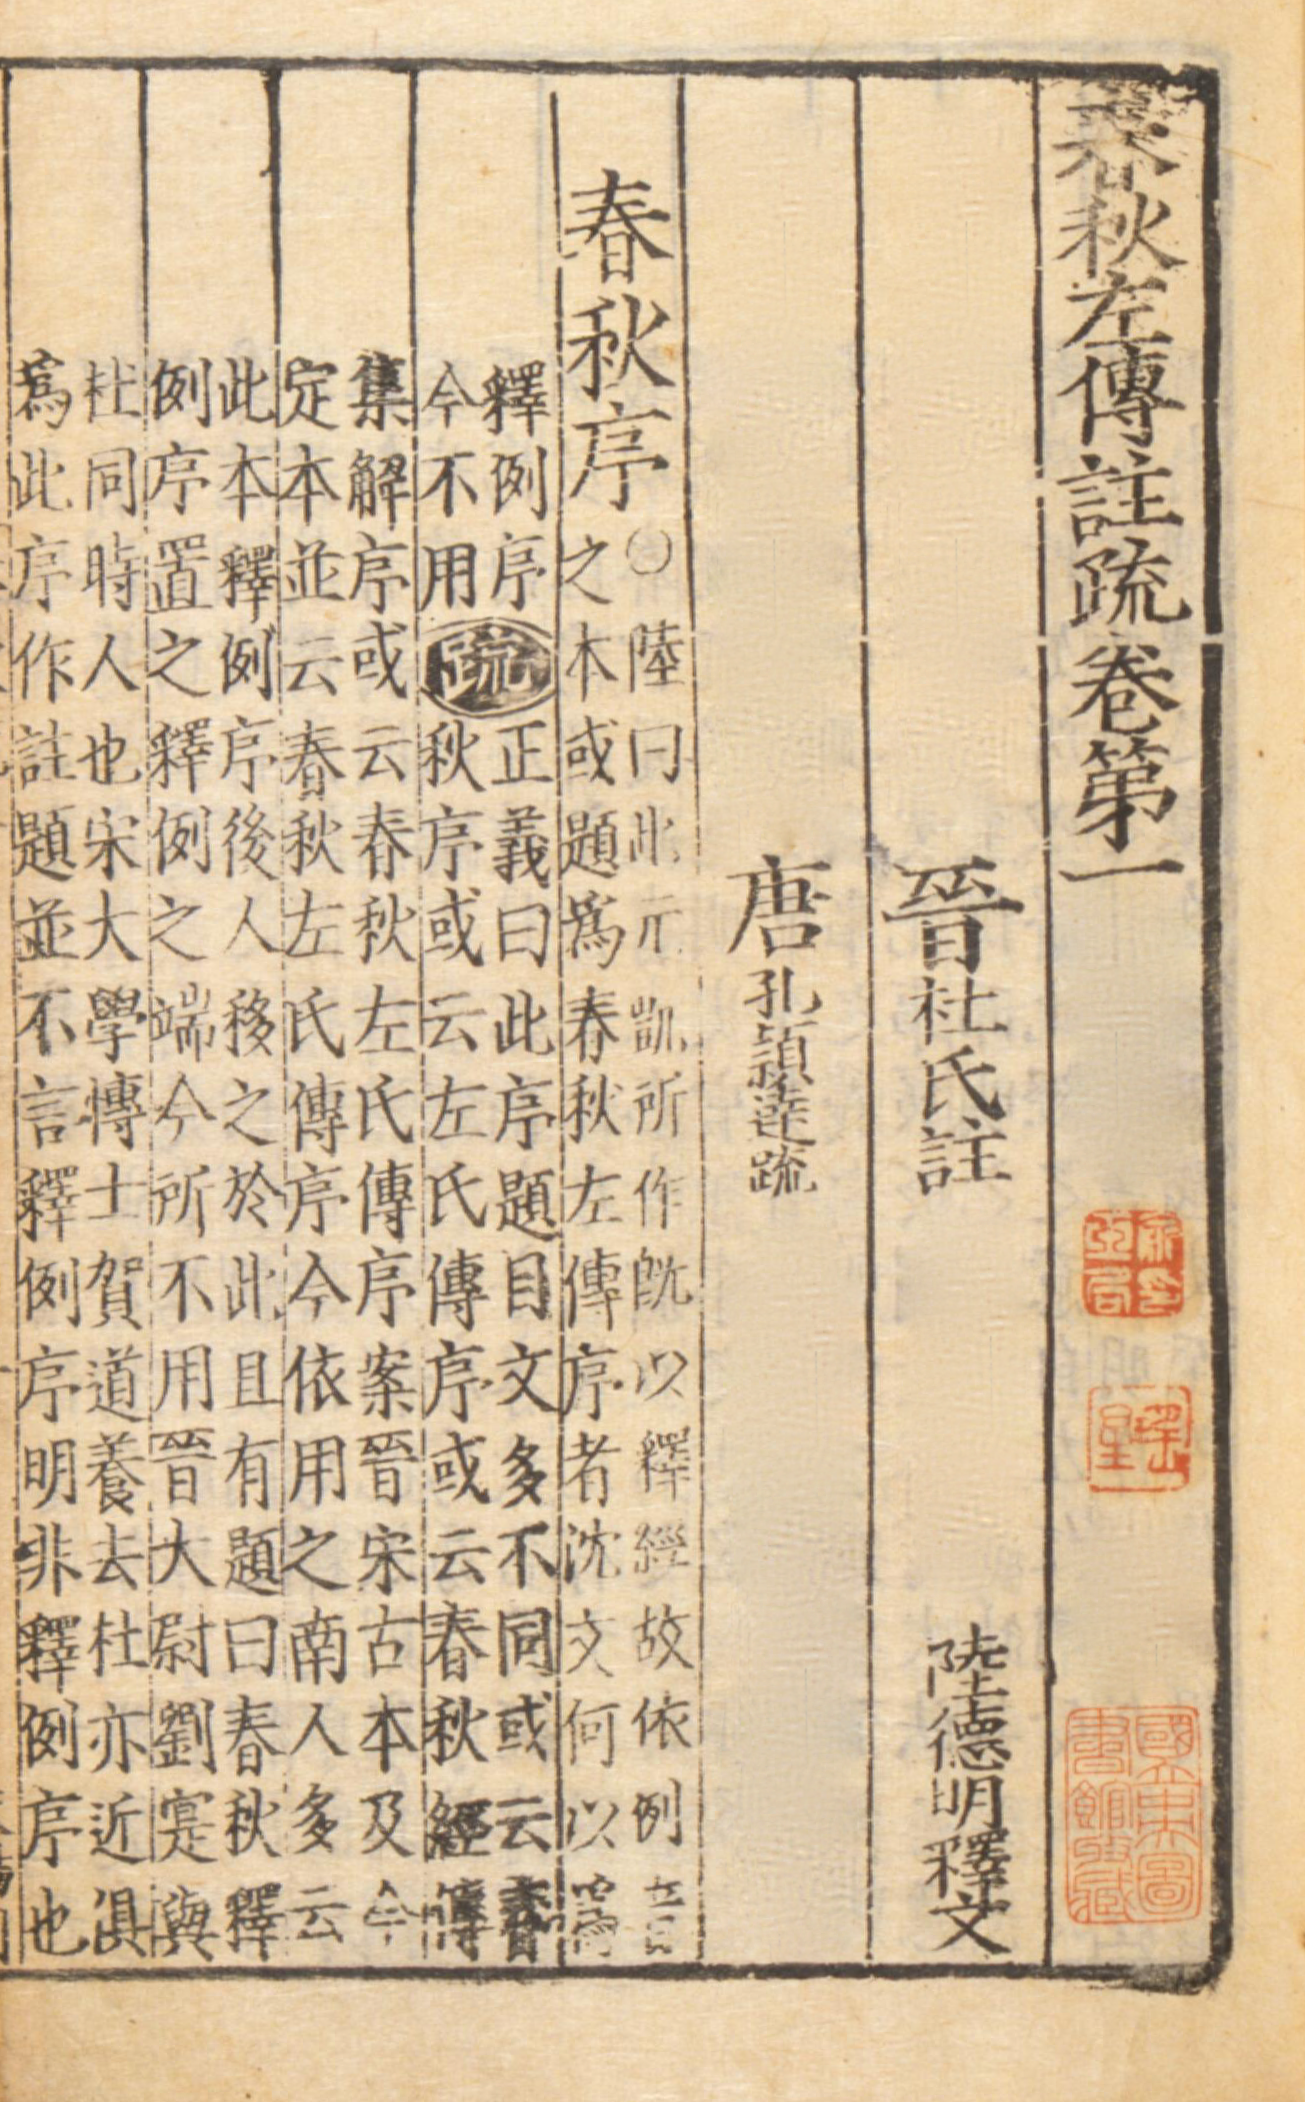 春秋左傳註疏卷第一
晉杜氏註 陸德明釋文
唐孔頴達疏
春秋序
○陸曰此元凱所作旣以釋經故依例音
之本或題爲春秋左傳序者沈文何以爲
釋例序 疏 正義曰此序題目文多不同或云春
今不用 秋序或云左氏傳序或云春秋經傳
集解序或云春秋左氏傳序案晉宋古本及今
定本並云春秋左氏傳序今依用之南人多云
此本釋例序後人移之於此且有題曰春秋釋
例序置之釋例之端今所不用晉大尉劉寔與
杜同時人也宋大學慱士賀道養去杜亦近俱
爲此序作註題並不言釋例序明非釋例序也
國立中央圖書館收藏